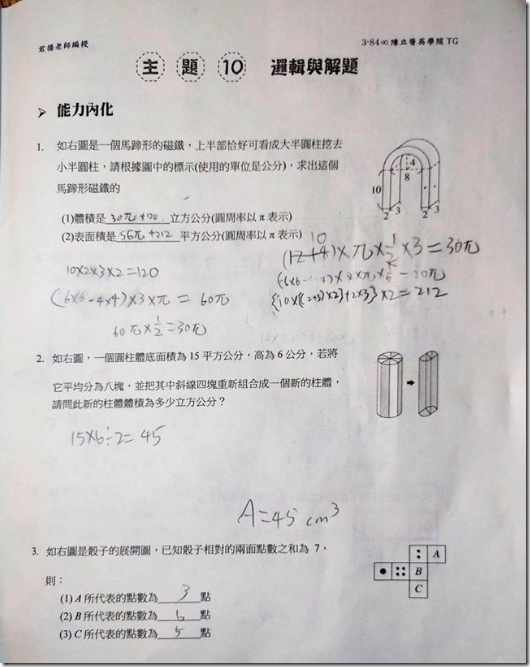 君揚老師編授
3-84∞ 陳立菁英學院 TG
主題10 邏輯與解題
➤ 能力內化
1. 如右圖是一個馬蹄形的磁鐵，上半部恰好可看成大半圓柱挖去
小半圓柱，請根據圖中的標示(使用的單位是公分)，求出這個
馬蹄形磁鐵的
(1)體積是 30π+120 立方公分(圓周率以 π 表示)
(2)表面積是 56π+212 平方公分(圓周率以 π 表示)
4
8
10
2 3 2 3
10
(12+4)×π×½×3=30π
{10×(2+3)×2}+2×3}×2=212
10×2×3×2=120
(6×6-4×4)×3×π = 60π
60π×½=30π
2. 如右圖，一個圓柱體底面積為 15 平方公分，高為 6 公分，若將
它平均分為八塊，並把其中斜線四塊重新組合成一個新的柱體，
請問此新的柱體體積為多少立方公分？
15×6÷2=45
A=45 cm³
3. 如右圖是骰子的展開圖，已知骰子相對的兩面點數之和為 7，
則：
(1) A 所代表的點數為 3 點
(2) B 所代表的點數為 6 點
(3) C 所代表的點數為 5 點
A
B
C